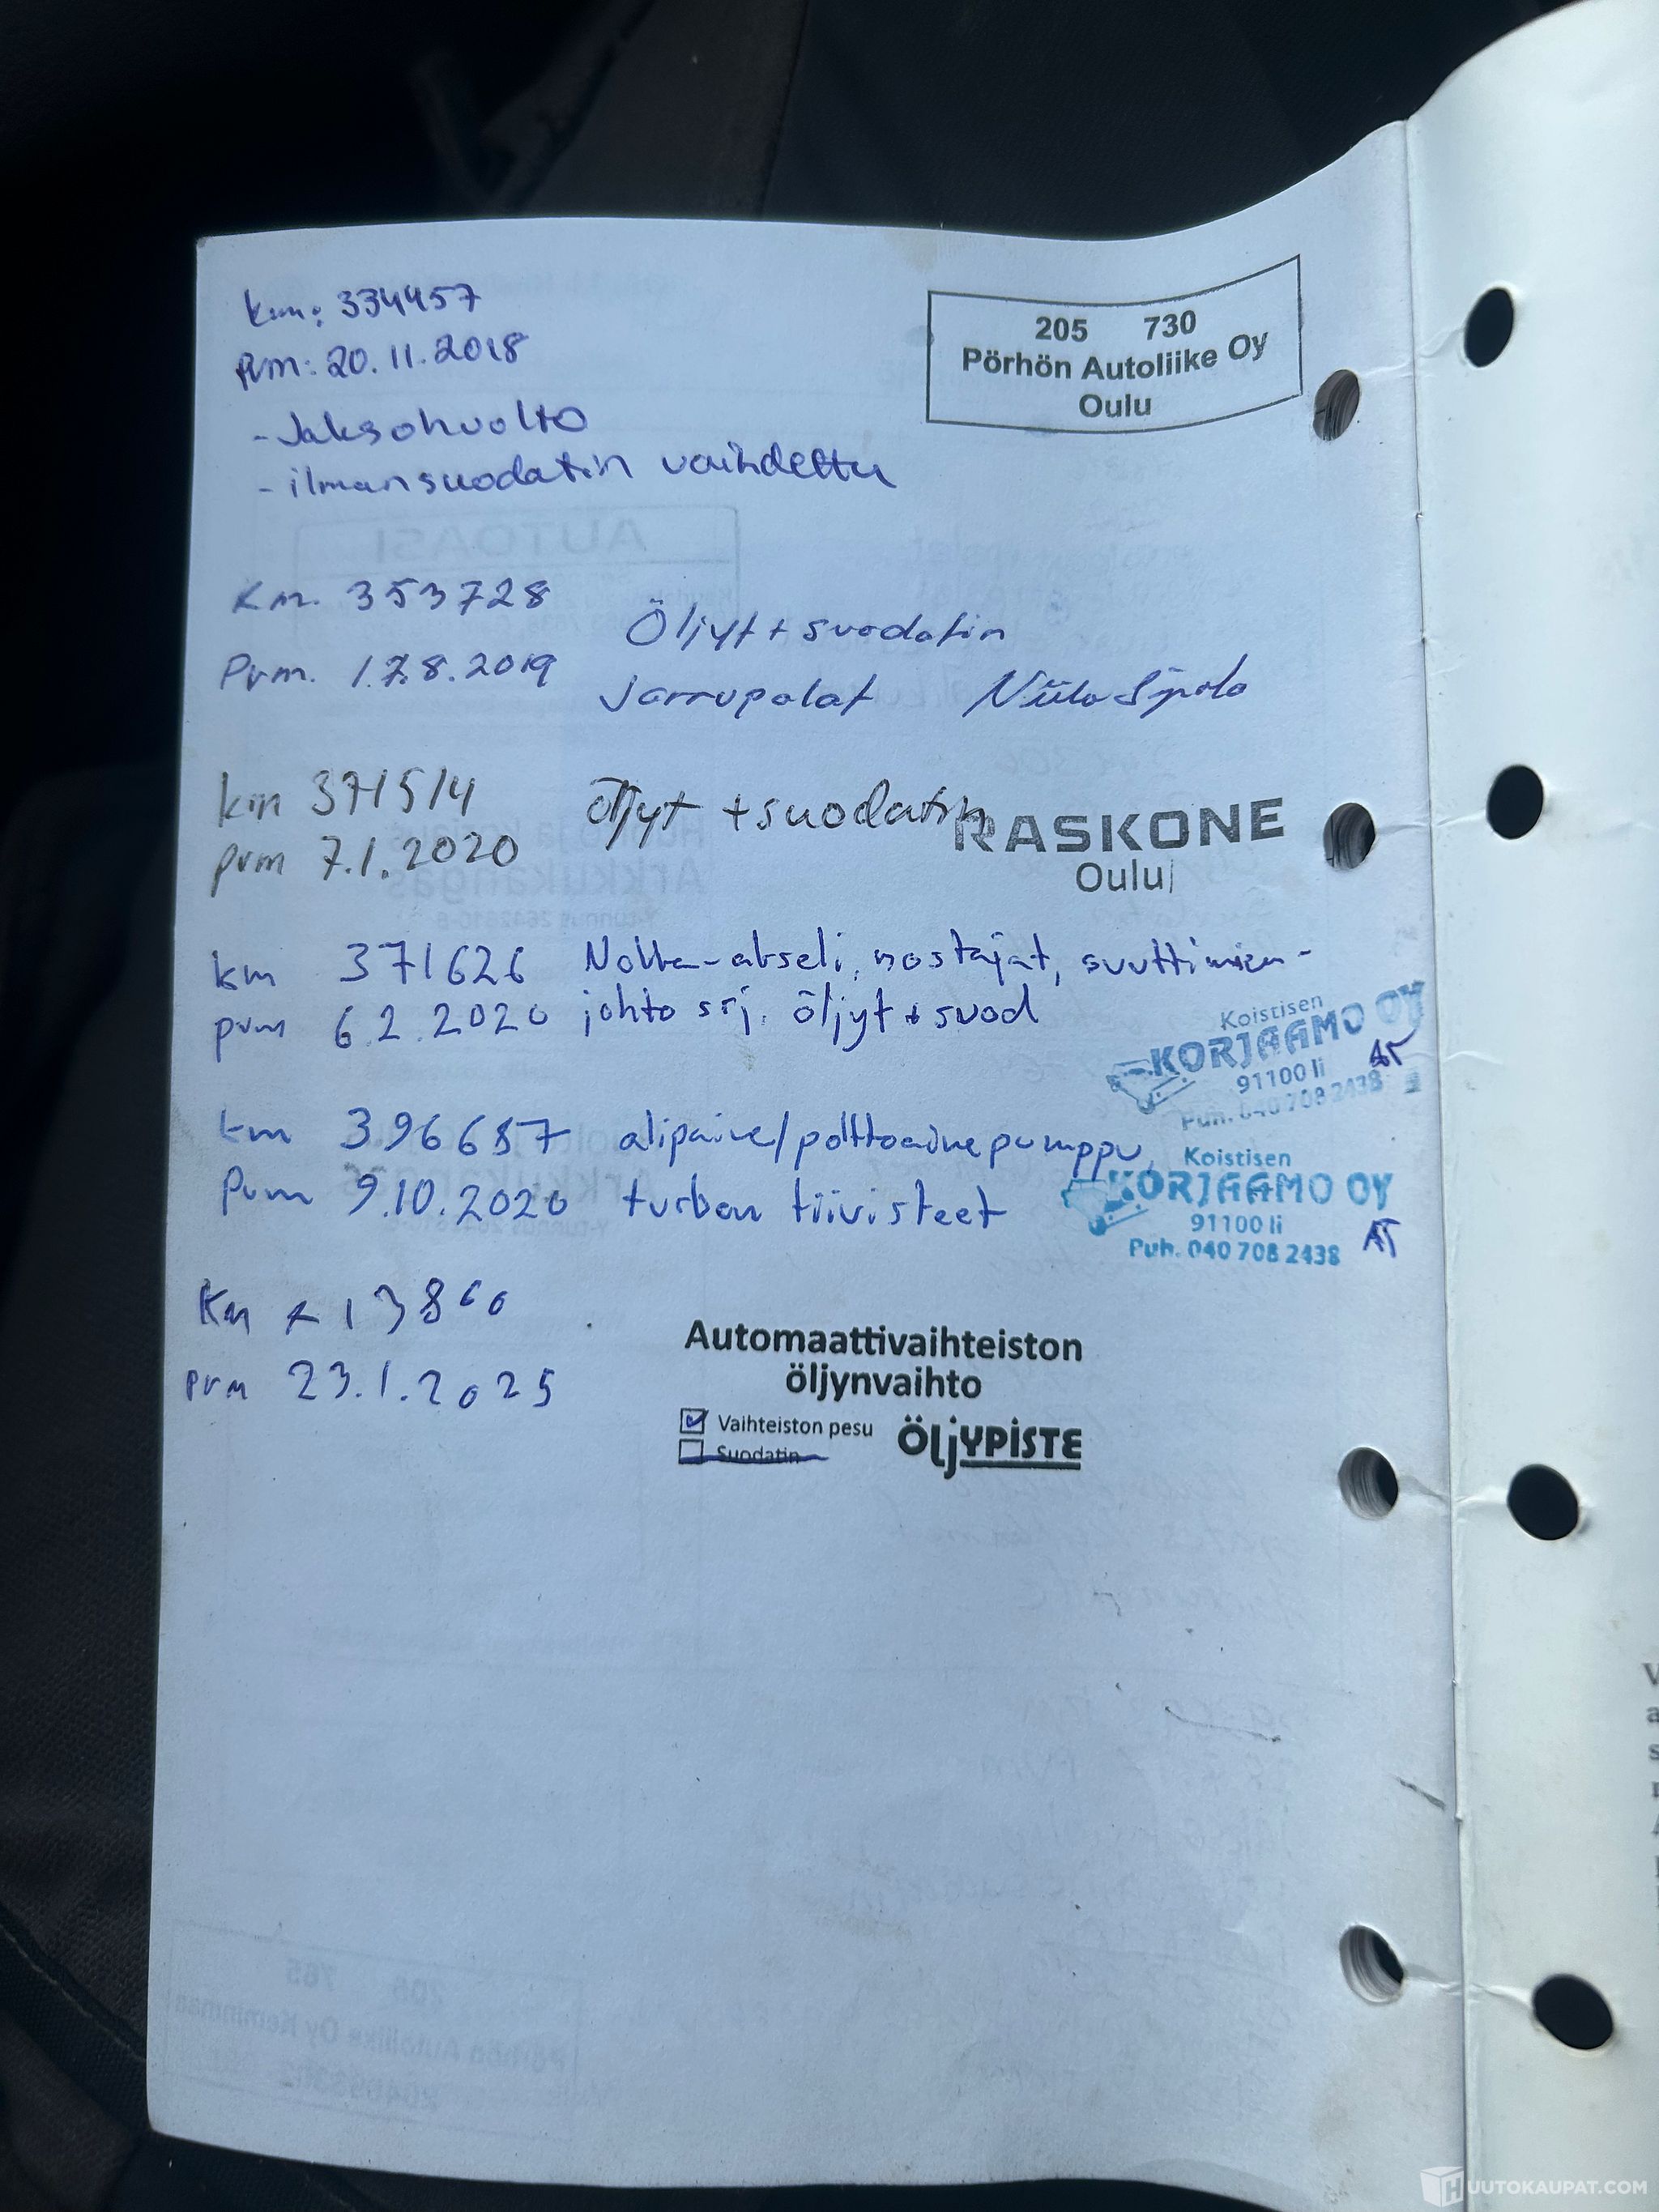 Km: 334457
Pvm: 20.11.2018
- Jaksohuolto
- ilmansuodatin vaihdettu
205 730
Pörhön Autoliike Oy
Oulu
Km. 353728
Öljyt + suodatin
Pvm. 17.8.2019
Jarrupalat
km 371514
öljyt + suodatin
pvm 7.1.2020
RASKONE
Oulu
km 371626 Nokka-akseli, nostajat, suuttimien-
pvm 6.2.2020 johto srj. öljyt + suod
Koistisen
KORJAAMO OY
91100 Ii
Puh. 040 708 2438
AT
km 396687 alipaine/polttoainepumppu,
Pvm 9.10.2020 turbon tiivisteet
Koistisen
KORJAAMO OY
91100 Ii
Puh. 040 708 2438
AT
Km 413860
pvm 23.1.2025
Automaattivaihteiston
öljynvaihto
Vaihteiston pesu
Suodatin
ÖLJYPISTE
HUUTOKAUPAT.COM